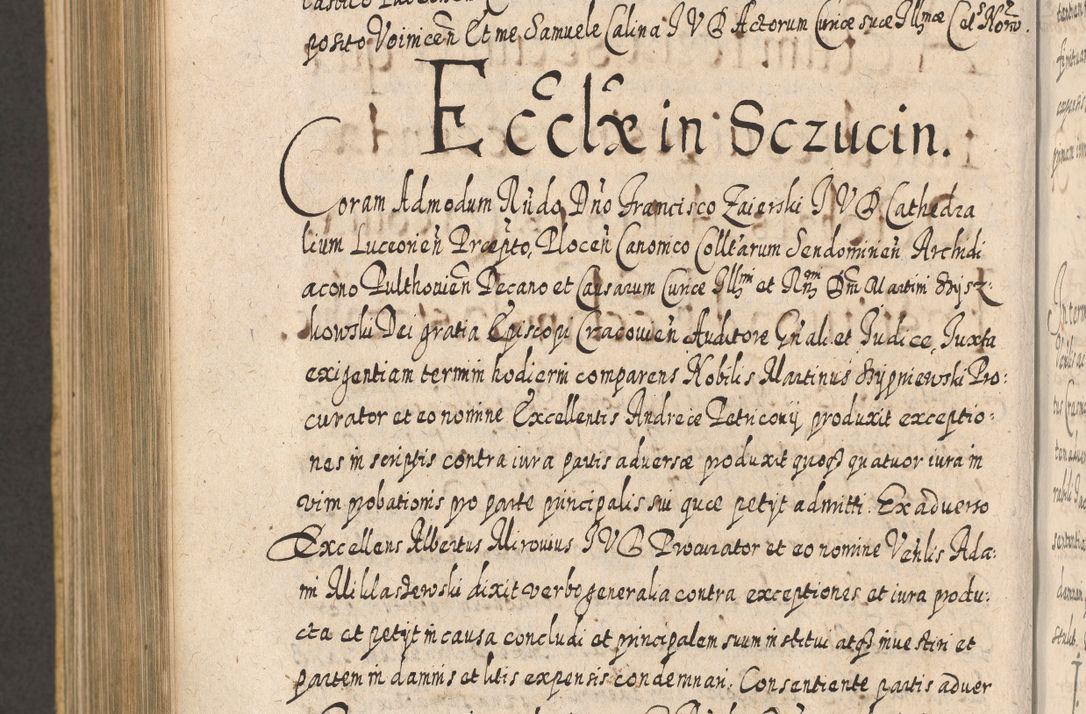 posito Voinicen̄ Et me Samuele Calina I V D Actorum Curiæ suæ Illmæ Cels Notro.
Eccclæ in Sczucin.
Coram Admodum Rn̄do Dn̄o Francisco Zaierski I V D Cathedra
lium Luceorien̄ Præpto, Plocen̄ Canonico Colltarum Sendomirien̄ Archidi
acono Pulthovien̄ Decano et Causarum Curiæ Illmi et Rndmi Dn̄i Martini Szysz-
kowski Dei gratia Episcopi Cracovien̄ Auditore Gn̄ali et Judice, Juxta
exigentiam termini hodierni comparens Nobilis Martinus Szypniewski Pro:
curator et eo nomine Excellentis Andreæ Petricovij produxit exceptio:
nes in scriptis contra iura partis adversæ produxit quoq3 quatuor iura in
vim probationis pro parte principalis sui quæ petijt admitti. Ex adverso
Excellens Albertus Mirovius I V D Procurator et eo nomine Venlis Ada:
mi Miklaszewski dixit verbo generalia contra exceptiones et iura produ:
cta et petijt in causa concludi et principalem suum institui atq3 investiri et
partem in damnis et litis expensis condemnari. Consentiente partis adver